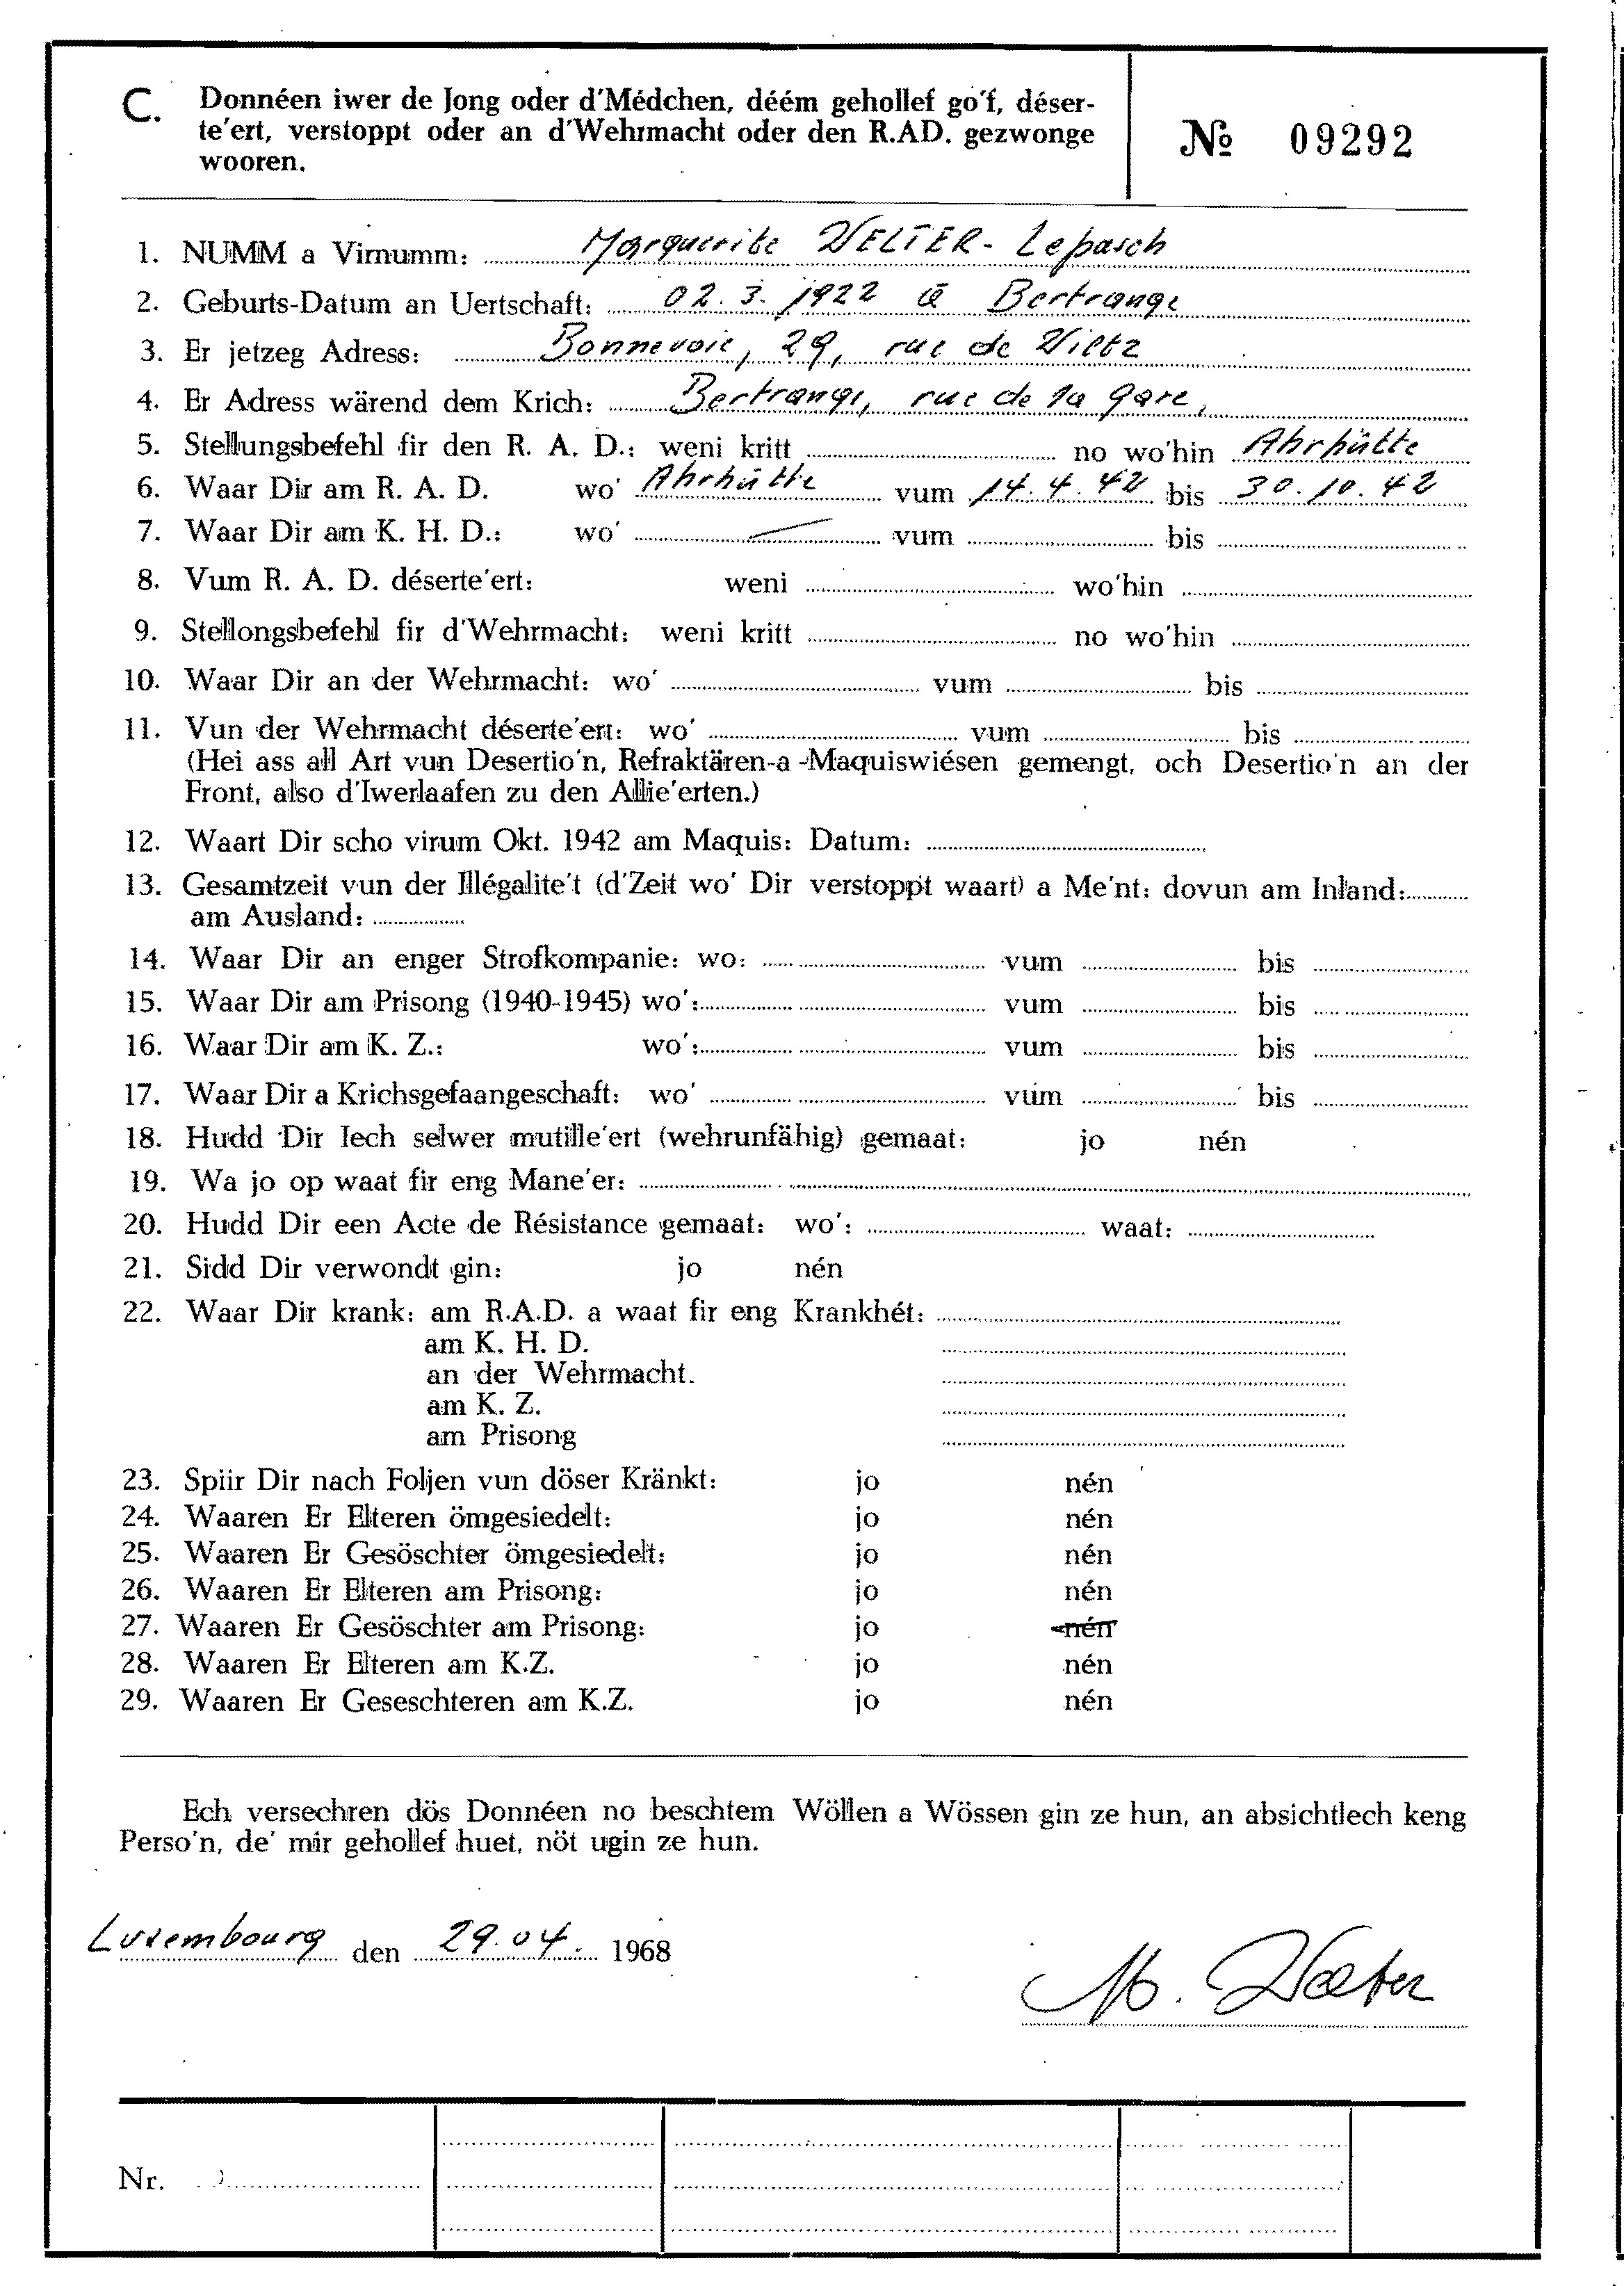 C. Donnéen iwer de Jong oder d'Médchen, déém gehollef go'f, déser-
te'ert, verstoppt oder an d'Wehrmacht oder den R.AD. gezwonge
wooren.
№ 09292
1. NUMM a Virnumm: Marguerite WELTER- Lepasch
2. Geburts-Datum an Uertschaft: 02. 3. 1922 à Bertrange
3. Er jetzeg Adress: Bonnevoie, 29, rue de Wiltz
4. Er Adress wärend dem Krich: Bertrange, rue de la gare,
5. Stellungsbefehl fir den R. A. D.: weni kritt no wo'hin Ahrhütte
6. Waar Dir am R. A. D. wo' Ahrhütte vum 14. 4. 42 bis 30. 10. 42
7. Waar Dir am K. H. D.: wo' vum bis
8. Vum R. A. D. déserte'ert: weni wo'hin
9. Stellongsbefehl fir d'Wehrmacht: weni kritt no wo'hin
10. Waar Dir an der Wehrmacht: wo' vum bis
11. Vun der Wehrmacht déserte'ert: wo' vum bis
(Hei ass all Art vun Desertio'n, Refraktären-a-Maquiswiésen gemengt, och Desertio'n an der
Front, also d'Iwerlaafen zu den Allie'erten.)
12. Waart Dir scho virum Okt. 1942 am Maquis: Datum:
13. Gesamtzeit vun der Illégalite't (d'Zeit wo' Dir verstoppt waart) a Me'nt: dovun am Inland:
am Ausland:
14. Waar Dir an enger Strofkompanie: wo: vum bis
15. Waar Dir am Prisong (1940-1945) wo': vum bis
16. Waar Dir am K. Z.: wo': vum bis
17. Waar Dir a Krichsgefaangeschaft: wo' vum bis
18. Hudd Dir Iech selwer mutille'ert (wehrunfähig) gemaat: jo nén
19. Wa jo op waat fir eng Mane'er:
20. Hudd Dir een Acte de Résistance gemaat: wo': waat:
21. Sidd Dir verwondt gin: jo nén
22. Waar Dir krank: am R.A.D. a waat fir eng Krankhét:
am K. H. D.
an der Wehrmacht.
am K. Z.
am Prisong
23. Spiir Dir nach Foljen vun döser Kränkt: jo nén
24. Waaren Er Elteren ömgesiedelt: jo nén
25. Waaren Er Gesöschter ömgesiedelt: jo nén
26. Waaren Er Elteren am Prisong: jo nén
27. Waaren Er Gesöschter am Prisong: jo nén
28. Waaren Er Elteren am K.Z. jo nén
29. Waaren Er Geseschteren am K.Z. jo nén
Ech versechren dös Donnéen no beschtem Wöllen a Wössen gin ze hun, an absichtlech keng
Perso'n, de' mir gehollef huet, nöt ugin ze hun.
Luxembourg den 29. 04. 1968
M. Welter
Nr.